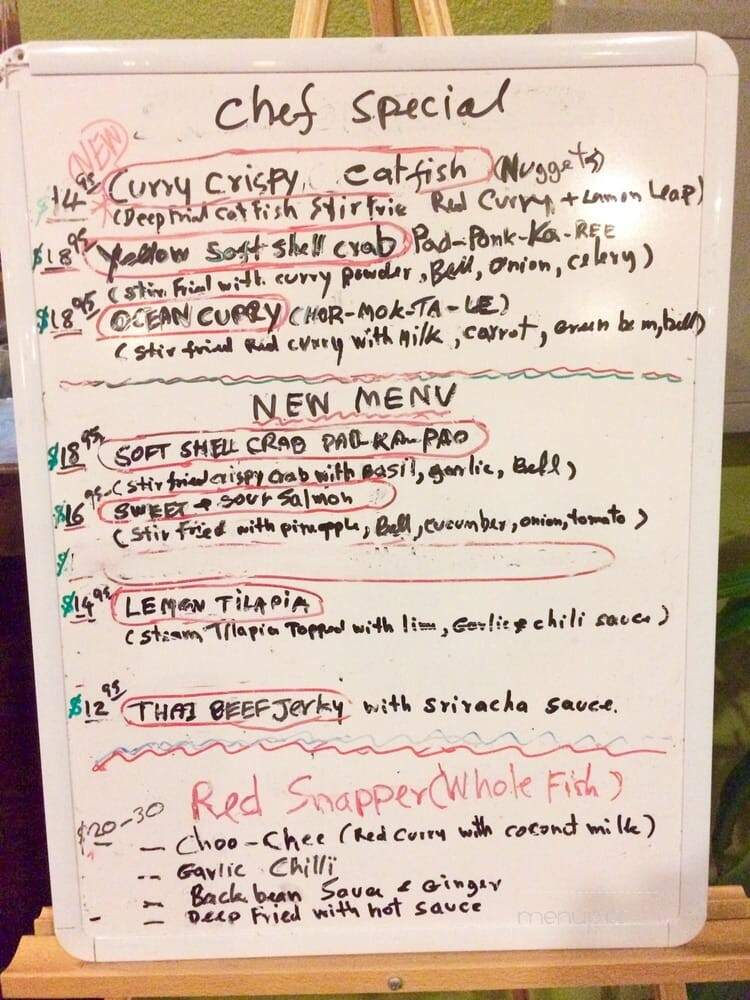 Chef Special
NEW
$14.95 Curry Crispy Catfish (Nuggets)
(Deep Fried Catfish Stir Frie Red Curry + Lemon Leap)
$18.95 Yellow Soft Shell Crab Pad-Ponk-Ka-REE
(Stir Fried with curry powder, Bell, onion, celery)
$18.95 OCEAN CURRY (HOR-MOK-TA-LE)
(Stir fried Red curry with Milk, carrot, green bean, bell)
NEW MENU
$18.95 SOFT SHELL CRAB PAD-KA-PAO
(Stir fried crispy crab with basil, garlic, Bell)
$16.95 SWEET & Sour Salmon
(Stir Fried with pineapple, Bell, cucumber, onion, tomato)
$
$14.95 LEMON TILAPIA
(Steam Tilapia Topped with lime, Garlic & chili sauce)
$12.95 THAI BEEF Jerky with Sriracha sauce.
Red Snapper (Whole Fish)
$20-30
— Choo-Chee (Red Curry with coconut milk)
-- Garlic Chilli
— Back bean Sauce & Ginger
- — Deep Fried with hot sauce
menupix